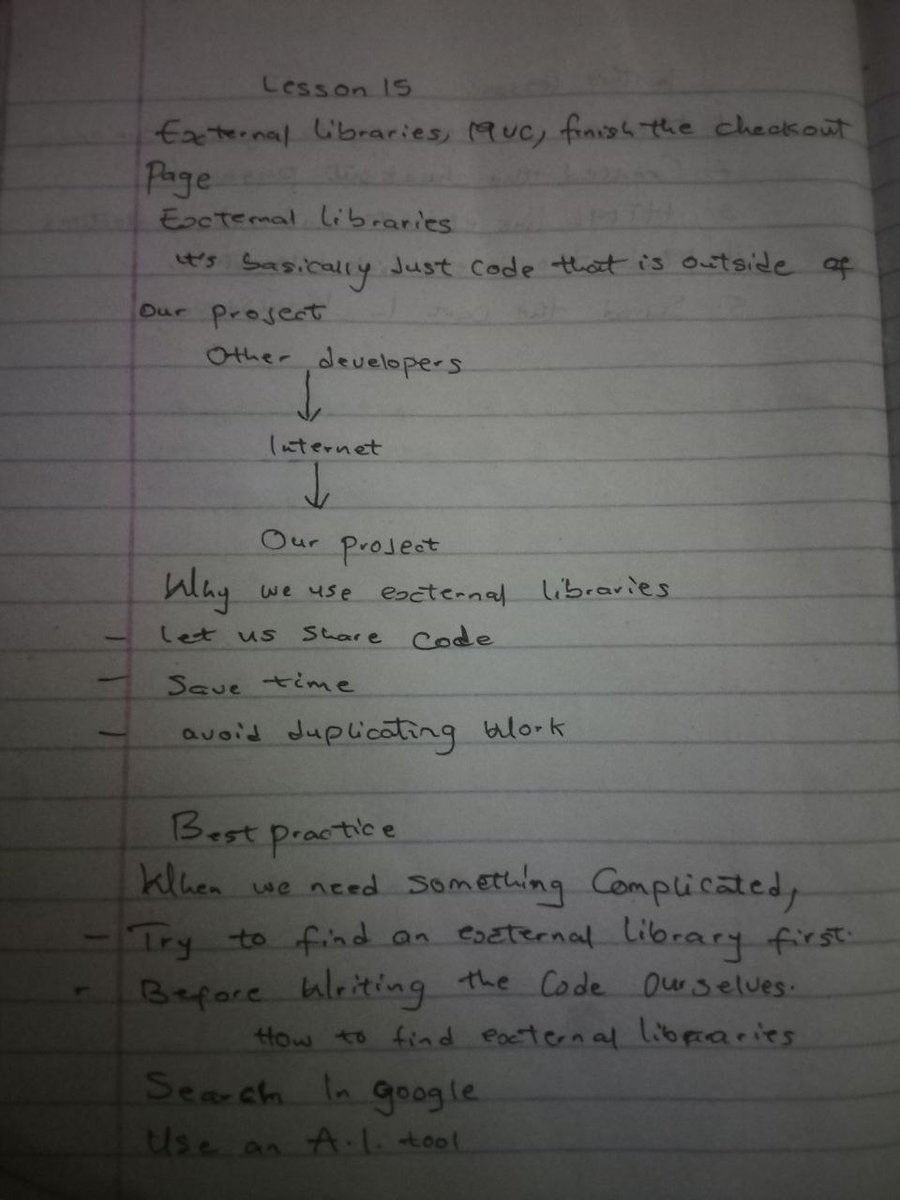 Lesson 15
External libraries, MVC, finish the checkout
Page
External libraries
it's basically Just code that is outside of
our project
Other developers
↓
Internet
↓
Our project
Why we use external libraries
- let us share code
- Save time
- avoid duplicating work
Best practice
When we need something Complicated,
- Try to find an external library first.
- Before writing the Code Ourselves.
How to find external libraries
Search In google
Use an A.I. tool